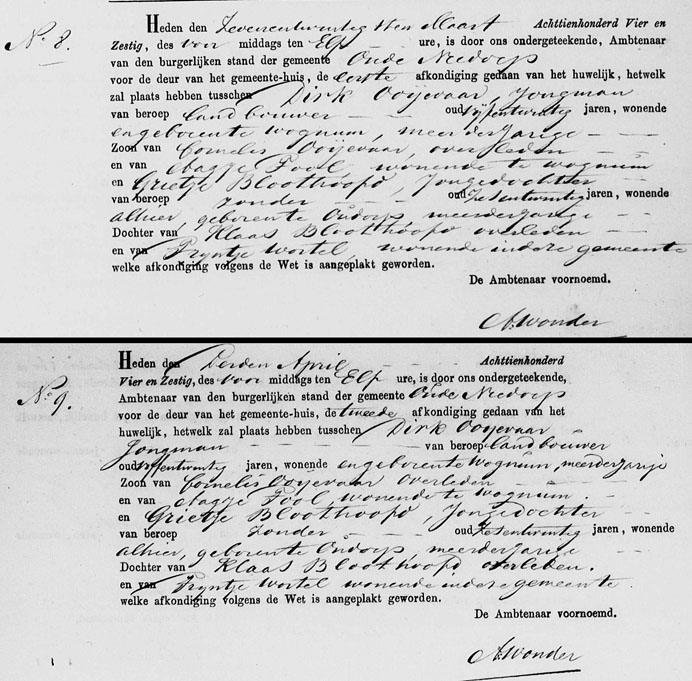 No. 8.
Heden den Zevenentwintigsten Maart Achttienhonderd Vier en
Zestig, des voor middags ten Elf ure, is door ons ondergeteekende, Ambtenaar
van den burgerlijken stand der gemeente Oude Niedorp
voor de deur van het gemeente-huis, de eerste afkondiging gedaan van het huwelijk, hetwelk
zal plaats hebben tusschen Dirk Ooijevaar, Jongman
van beroep landbouwer oud vijfentwintig jaren, wonende
en geboren te Wognum, meerderjarige
Zoon van Cornelis Ooijevaar, overleden
en van Aagje Fool, wonende te Wognum
en Grietje Bloothoofd, Jongedochter
van beroep zonder oud Zesentwintig jaren, wonende
alhier, geboren te Oudorp, meerderjarige
Dochter van Klaas Bloothoofd overleden
en van Tryntje Wortel, wonende in deze gemeente
welke afkondiging volgens de Wet is aangeplakt geworden.
De Ambtenaar voornoemd.
A. Wonder
No. 9.
Heden den Derden April Achttienhonderd
Vier en Zestig, des voor middags ten Elf ure, is door ons ondergeteekende,
Ambtenaar van den burgerlijken stand der gemeente Oude Niedorp
voor de deur van het gemeente-huis, de tweede afkondiging gedaan van het
huwelijk, hetwelk zal plaats hebben tusschen Dirk Ooijevaar
Jongman van beroep landbouwer
oud vijfentwintig jaren, wonende en geboren te Wognum, meerderjarige
Zoon van Cornelis Ooijevaar overleden
en van Aagje Fool, wonende te Wognum.
en Grietje Bloothoofd, Jongedochter
van beroep zonder oud Zesentwintig jaren, wonende
alhier, geboren te Oudorp, meerderjarige
Dochter van Klaas Bloothoofd overleden.
en van Tryntje Wortel wonende in deze gemeente.
welke afkondiging volgens de Wet is aangeplakt geworden.
De Ambtenaar voornoemd.
A. Wonder